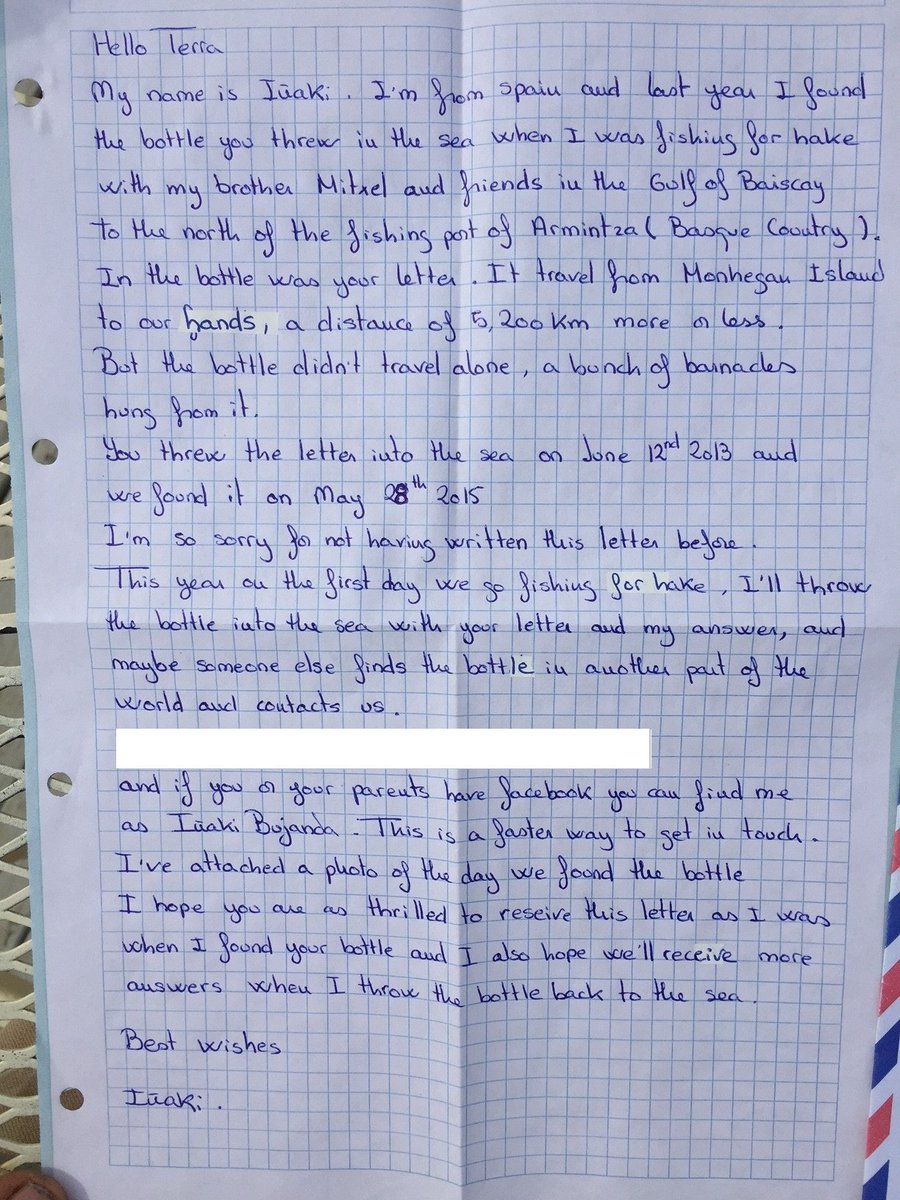 Hello Terra
My name is Iñaki. I'm from Spain and last year I found
the bottle you threw in the sea when I was fishing for hake
with my brother Mitxel and friends in the Gulf of Baiscay
to the north of the fishing port of Armintza (Basque Country).
In the bottle was your letter. It travel from Monhegan Island
to our hands, a distance of 5,200 Km more or less.
But the bottle didn't travel alone, a bunch of barnacles
hung from it.
You threw the letter into the sea on June 12nd 2013 and
we found it on May 28th 2015
I'm so sorry for not having written this letter before.
This year on the first day we go fishing for hake, I'll throw
the bottle into the sea with your letter and my answer, and
maybe someone else finds the bottle in another part of the
world and contacts us.
and if you or your parents have facebook you can find me
as Iñaki Bujanda. This is a faster way to get in touch.
I've attached a photo of the day we found the bottle
I hope you are as thrilled to reseive this letter as I was
when I found your bottle and I also hope we'll receive more
answers when I throw the bottle back to the sea.
Best wishes
Iñaki.